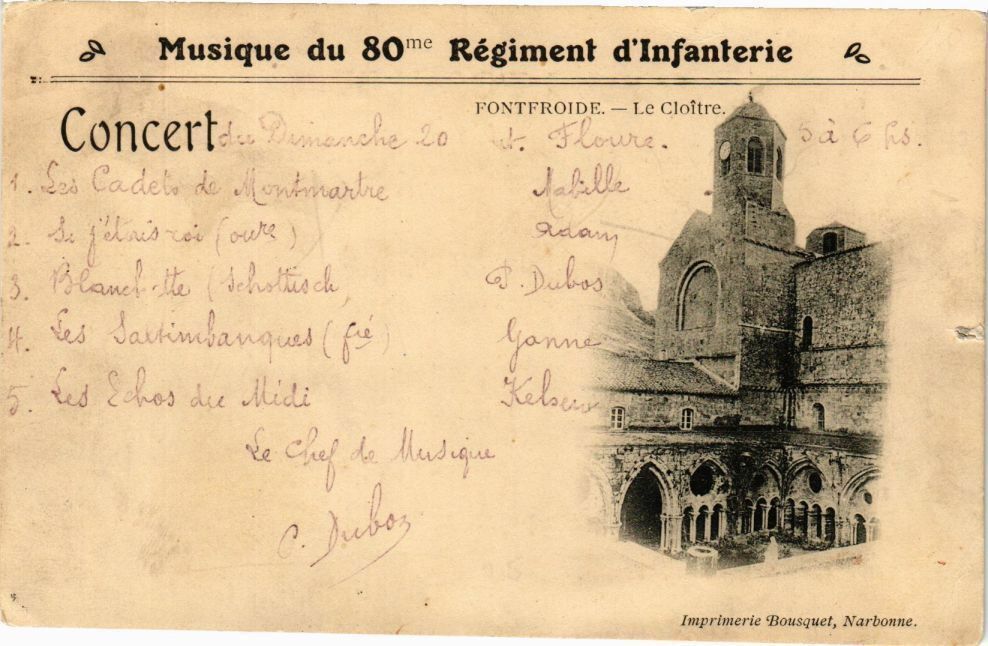 Musique du 80me Régiment d'Infanterie
FONTFROIDE. — Le Cloître.
Concert du Dimanche 20 5 à 6 hs.
1. Les Cadets de Montmartre Mabille
2. Si j'étais roi (oure) Adam
3. Blanchette (Schottisch P. Dubos
4. Les Saltimbanques (fie) Ganne
5. Les Echos du Midi Kelsen
Le Chef de Musique
P. Dubos
Imprimerie Bousquet, Narbonne.